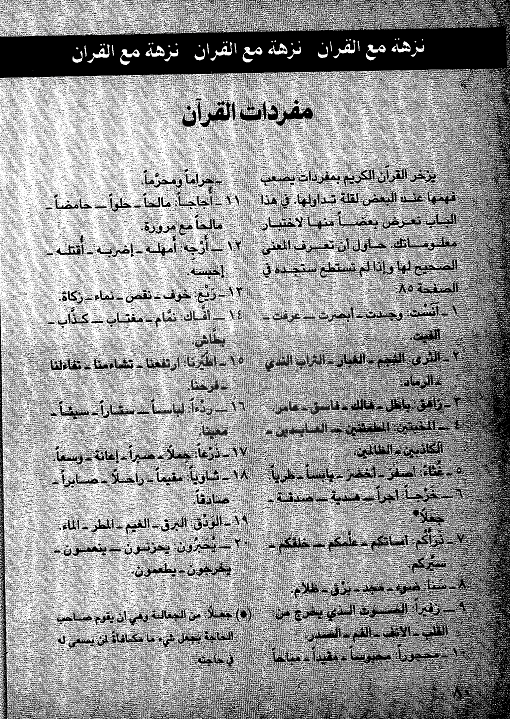 نزهة مع القرآن نزهة مع القرآن نزهة مع القرآن
مفردات القرآن
يزخر القرآن الكريم بمفردات يصعب
فهمها عند البعض لقلة تداولها. في هذا
الباب نعرض بعضاً منها لاختبار
معلوماتك حاول أن تعرف المعنى
الصحيح لها وإذا لم تستطع ستجده في
الصفحة ٨٥
١ - آنست: وجدت - أبصرت - عرفت -
ألفيت.
٢ - الثرى: الفحم - الغبار - التراب الندي
- الرماد.
٣ - زاهق: باطل - هالك - فاسق - عامر.
٤ - المخبتين: المطمئنين - العابدين -
الكاذبين - الظالمين.
٥ - غُثاءً: أصفر - أخضر - يابساً - طرياً.
٦ - خَرْجاً: أجراً - هدية - صدقة -
جعلاً*
٧ - ذرأكم: أماتكم - علّمكم - خلقكم -
سيّركم
٨ - سنا: ضوء - مجد - برْق - ظلام.
٩ - زفيراً: الصوت الذي يخرج من
القلب - الأنف - الفم - الصدر.
١٠ - محجوراً: محبوساً - مقيداً - مباحاً
- حراماً ومحرّماً.
١١ - أجاجاً: مالحاً - حلواً - حامضاً -
مالحاً مع مرورة.
١٢ - أرْجِه: أمهله - إضربه - أقتله -
إحبسه.
١٣ - رَيْع: خوف - نقص - نماء - زكاة.
١٤ - أفّاك: نمّام - مغتاب - كذّاب -
بطّاش.
١٥ - اطّيّرنا: ارتفعنا - تشاءمنا - تفاءلنا
- فرحنا.
١٦ - ردْءاً: لباساً - ستاراً - سيئاً -
معيناً.
١٧ - ذَرْعاً: حملاً - صبراً - إعانة - وسعاً.
١٨ - ثاوياً: مقيماً - راحلاً - صابراً -
صادقاً.
١٩ - الوَدْق: البرق - الغيم - المطر - الماء.
٢٠ - يُحْبَرُون: يحزنون - ينعمون -
يخرجون - يطعمون.
(*) جعلاً: من الجعالة وهي أن يقوم صاحب
الحاجة بجعل شيء ما مكافأة لمن يسعى له
في حاجته